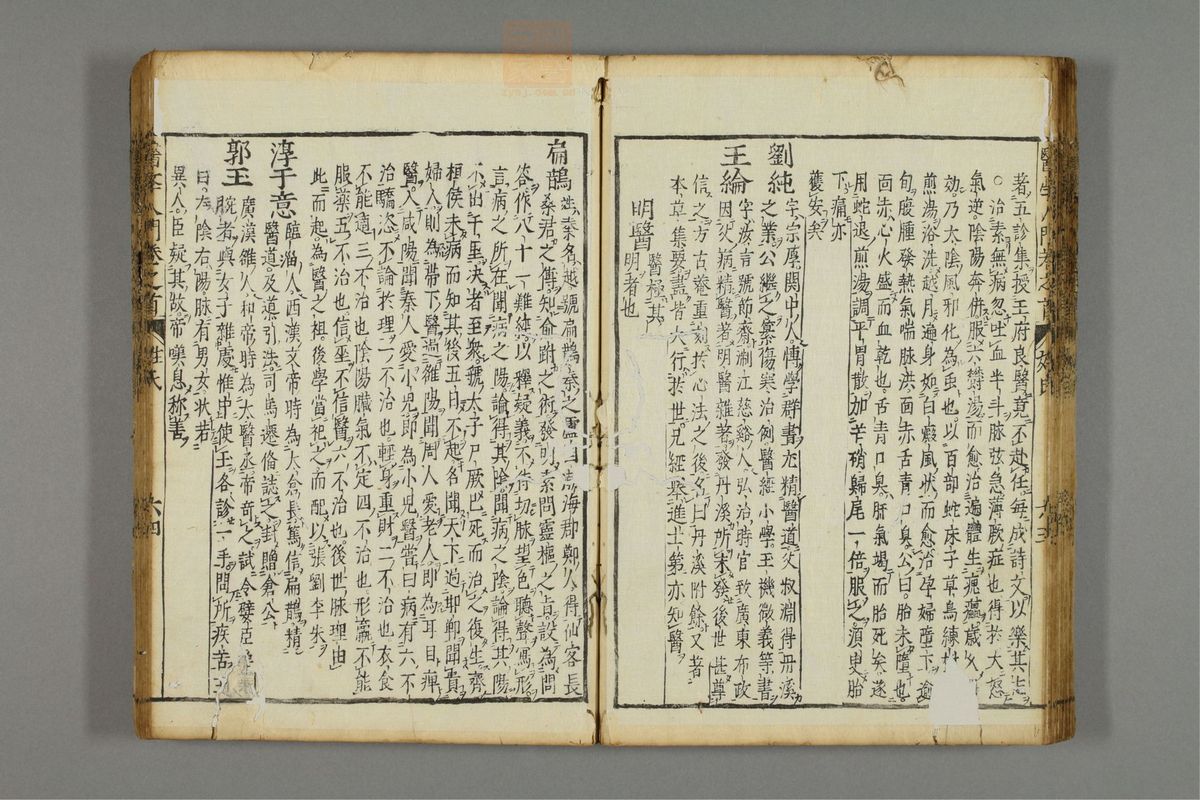 者五診集授王府良醫竟不赴任每成詩文以樂其志
○治素無病忽吐血半斗脉弦急薄厥症也得於大怒
氣逆陰陽奔併服六欝湯而愈治遍體生瘡
効乃太陰風邪化為虫也以百部蛇床子草烏練
煎湯浴洗越月遍身如白癜風狀而愈治孕婦墮下逾
旬腹腫發熱氣喘脉洪面赤舌青口臭公曰胎未墮也
面赤心火盛而血乾也舌青口臭肝氣竭而胎死矣遂
用蛇退煎湯調平胃散加芒硝歸尾一倍服之須臾胎
下痛亦
獲安矣
劉純 字宗厚関中人博學群書尤精醫道父叔淵得丹溪
之業公繼之纂傷寒治例醫經小學玉機微義等書
王綸 字汝言號節齋浙江慈谿人弘治時官致廣東布政
因父病精醫著明醫雜著發丹溪所未發後世甚尊
信之方古菴重刻於心法之後名曰丹溪附餘又著
本草集要書皆大行於世兄經舉進士第亦知醫
明醫 醫極其
明者也
扁鵲 姓秦名越號扁鵲秦之盧國渤海郡鄭人得仙客長
桑君之傳知俞跗之術發明素問靈樞之旨設為問
答作八十一難經以釋疑義不待切脉望色聽聲寫形
言病之所在聞病之陽論得其陰聞病之陰論得其陽
不出千里決者至衆虢太子尸厥已死而治之復生齊
桓侯未病而知其後五日不起名聞天下過邯鄲聞貴
婦人則為帶下醫過雒陽聞周人愛老人即為耳目痺
醫入咸陽聞秦人愛小児即為小児醫當曰病有六不
治驕恣不論於理一不治也輕身重財二不治也衣食
不能適三不治也陰陽臟氣不定四不治也形羸不能
服藥五不治也信巫不信醫六不治也後世脉理由
此而起為醫之祖後學當祀之而配以張劉李朱
淳于意 臨淄人西漢文帝時為太倉長篤信扁鵲精
醫道及導引法司馬遷備誌之封贈倉公
郭玉 廣漢雒人和帝時為太醫丞帝奇之試令嬖臣美
腕者與女子雜處帷中使玉各診一手問所疾苦玉
曰左陰右陽脉有男女狀若
異人臣疑其故帝嘆息称善
醫學入門卷之首 姓氏 六四
醫學入門卷之首 姓氏 六三